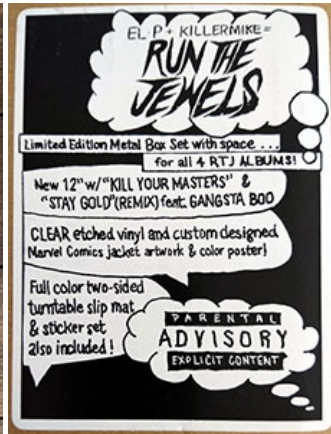 EL-P + KILLERMIKE =
RUN THE
JEWELS
Limited Edition Metal Box Set with space ...
for all 4 RTJ ALBUMS!
New 12" w/ "KILL YOUR MASTERS" &
"STAY GOLD" (REMIX) feat. GANGSTA BOO
CLEAR etched vinyl and custom designed
Marvel Comics jacket artwork & color poster!
Full color two-sided
turntable slip mat
& sticker set
also included!
PARENTAL
ADVISORY
EXPLICIT CONTENT